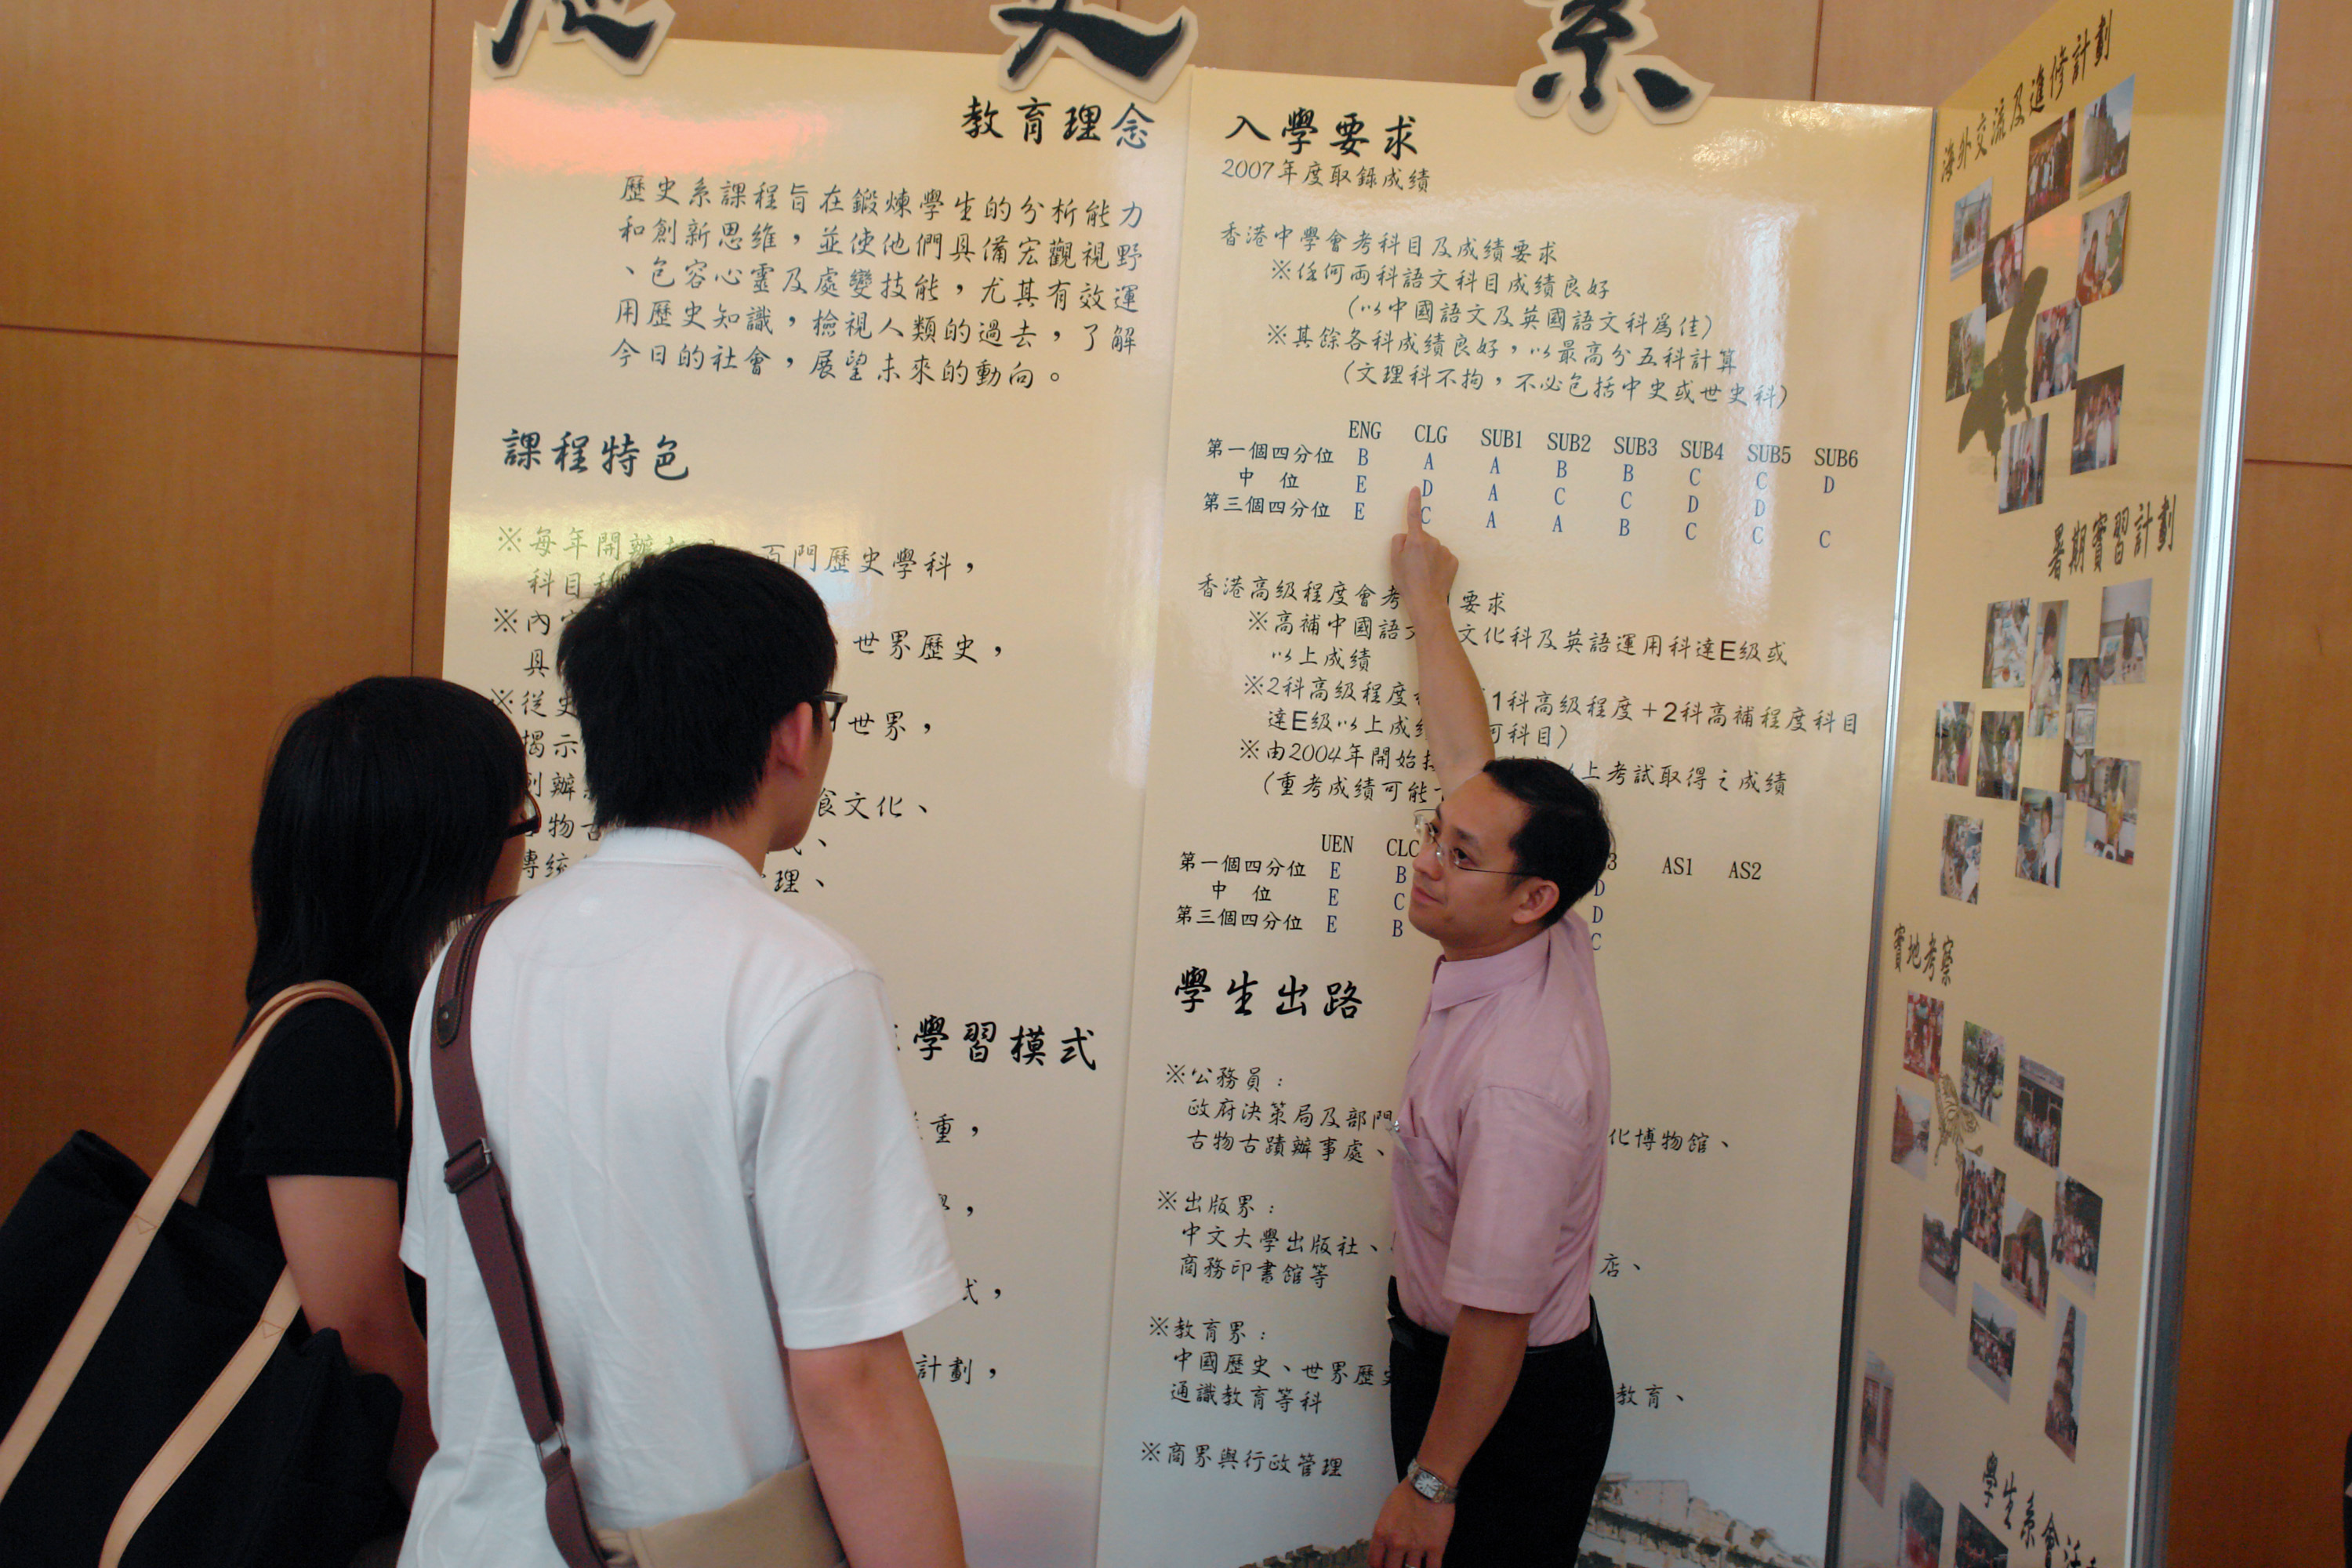 歷史系
教育理念
歷史系課程旨在鍛煉學生的分析能力
和創新思維，並使他們具備宏觀視野
、包容心靈及處變技能，尤其有效運
用歷史知識，檢視人類的過去，了解
今日的社會，展望未來的動向。
課程特色
※每年開辦 百門歷史學科，
科目
※內 世界歷史，
具
※從史 世界，
揭示
創辦 食文化、
物古
傳統 理、
學習模式
重，
式，
計劃，
入學要求
2007年度取錄成績
香港中學會考科目及成績要求
※任何両科語文科目成績良好
(以中國語文及英國語文科為佳)
※其餘各科成績良好，以最高分五科計算
(文理科不拘，不必包括中史或世史科)
ENG CLG SUB1 SUB2 SUB3 SUB4 SUB5 SUB6
第一個四分位 B A A B B C C D
中 位 E D A C C D D
第三個四分位 E C A A B C C C
香港高級程度會考 要求
※高補中國語文 文化科及英語運用科達E級或
以上成績
※2科高級程度 1科高級程度＋2科高補程度科目
達E級以上成績 可科目)
※由2004年開始接 以上考試取得之成績
(重考成績可能
UEN CLC 3 AS1 AS2
第一個四分位 E B D
中 位 E C D
第三個四分位 E B C
學生出路
※公務員：
政府決策局及部門 化博物館、
古物古蹟辦事處、
※出版界：
中文大學出版社、 店、
商務印書館等
※教育界：
中國歷史、世界歷史 教育、
通識教育等科
※商界與行政管理
海外交流及進修計劃
暑期實習計劃
實地考察
學生系會活